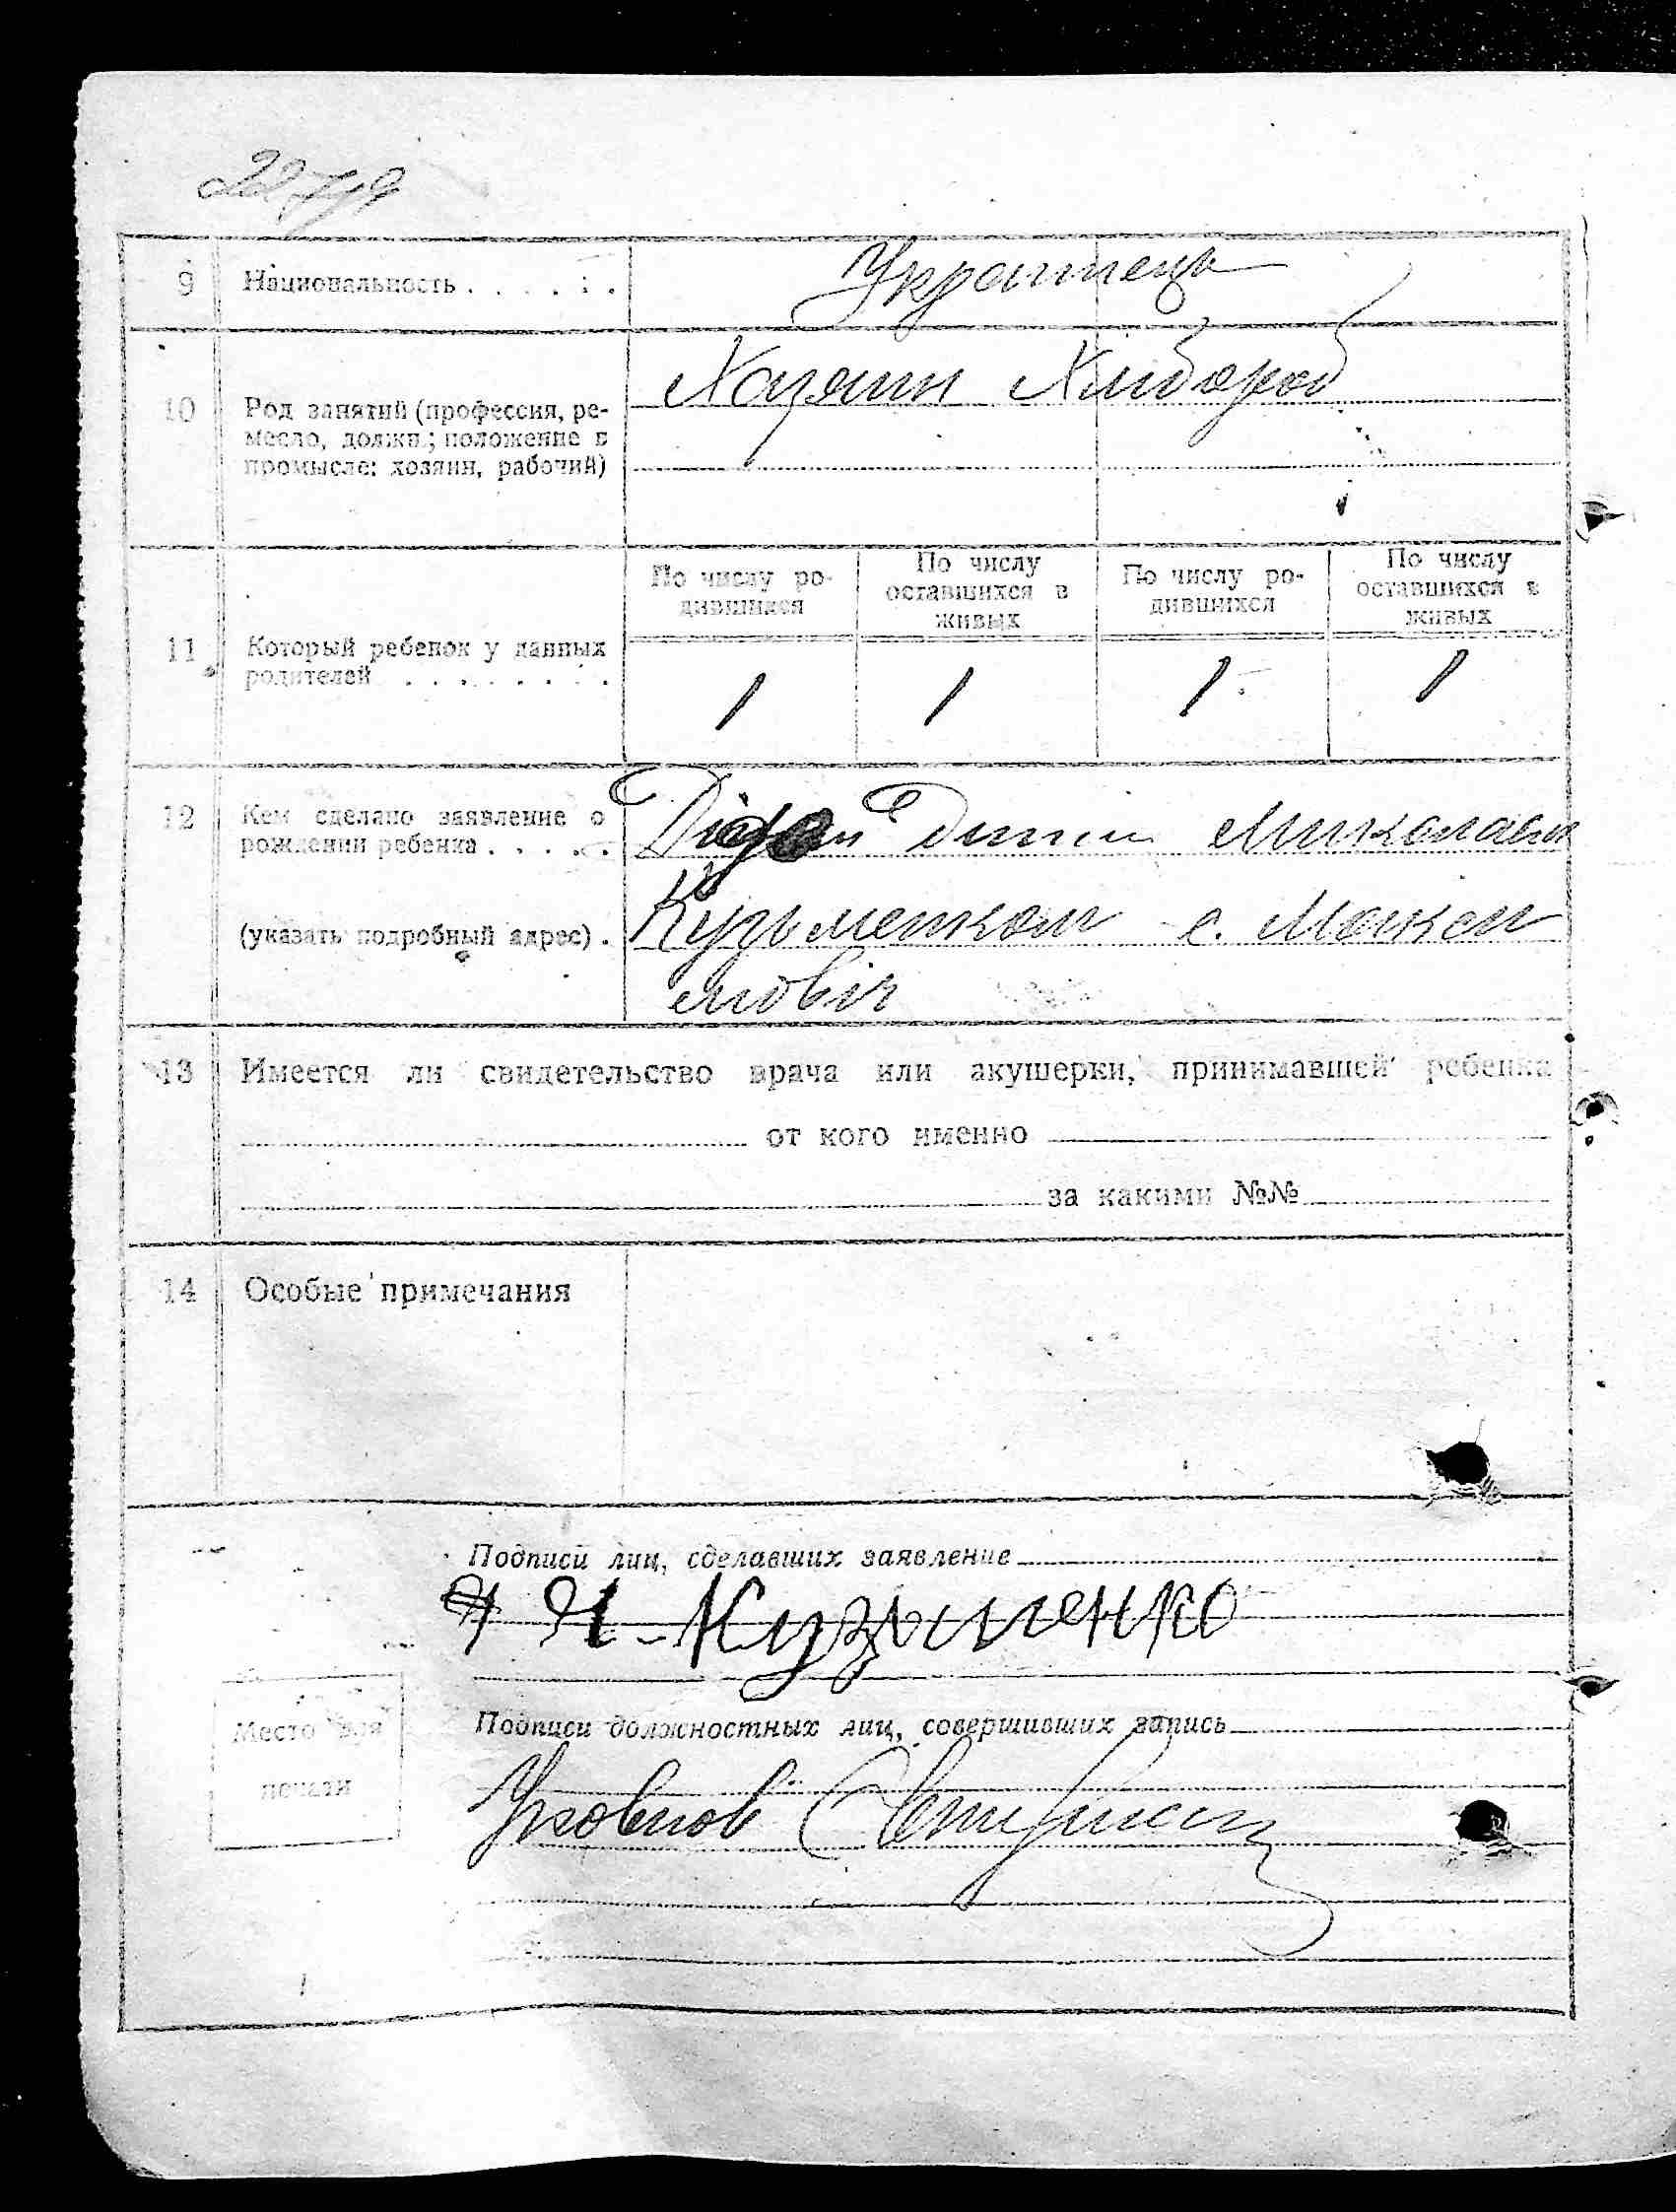 9 Национальность . . . . . . Украинець
10 Род занятий (профессия, ре-
месло, должн.; положение в
промысле: хозяин, рабочий)
Хазяин Хлибороб
11 Который ребенок у данных
родителей . . . . . . . .
По числу ро-
дившихся
По числу
оставшихся в
живых
По числу ро-
дившихся
По числу
оставшихся в
живых
1 1 1 1
12 Кем сделано заявление о
рождении ребенка . . . . .
(указать подробный адрес) .
Дідом Миколаем
Кузьменком с. Мокия
мовіч
13 Имеется ли свидетельство врача или акушерки, принимавшей ребенка
от кого именно
за какими №№
14 Особые примечания
Подписи лиц, сделавших заявление
Н. Кузьменко
Место для
печати
Подписи должностных лиц, совершивших запись